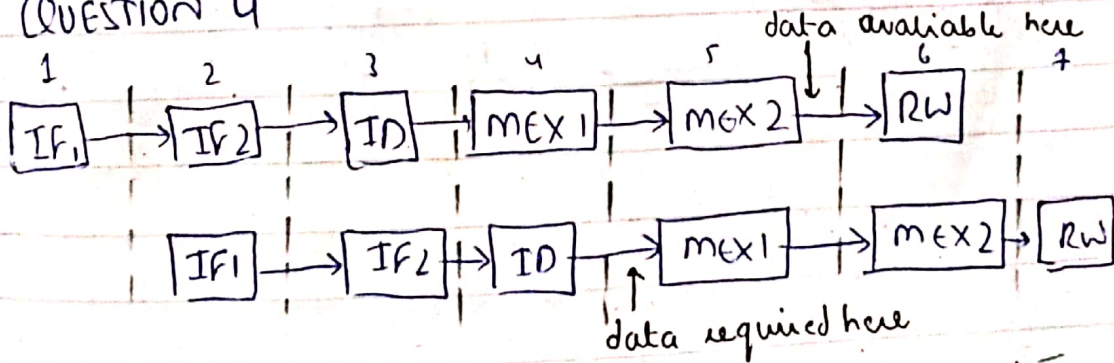 QUESTION 4
data avaliable here
1 2 3 4 5 6 7
IF1 IF2 ID MEX1 MEX2 RW
IF1 IF2 ID MEX1 MEX2 RW
data required here